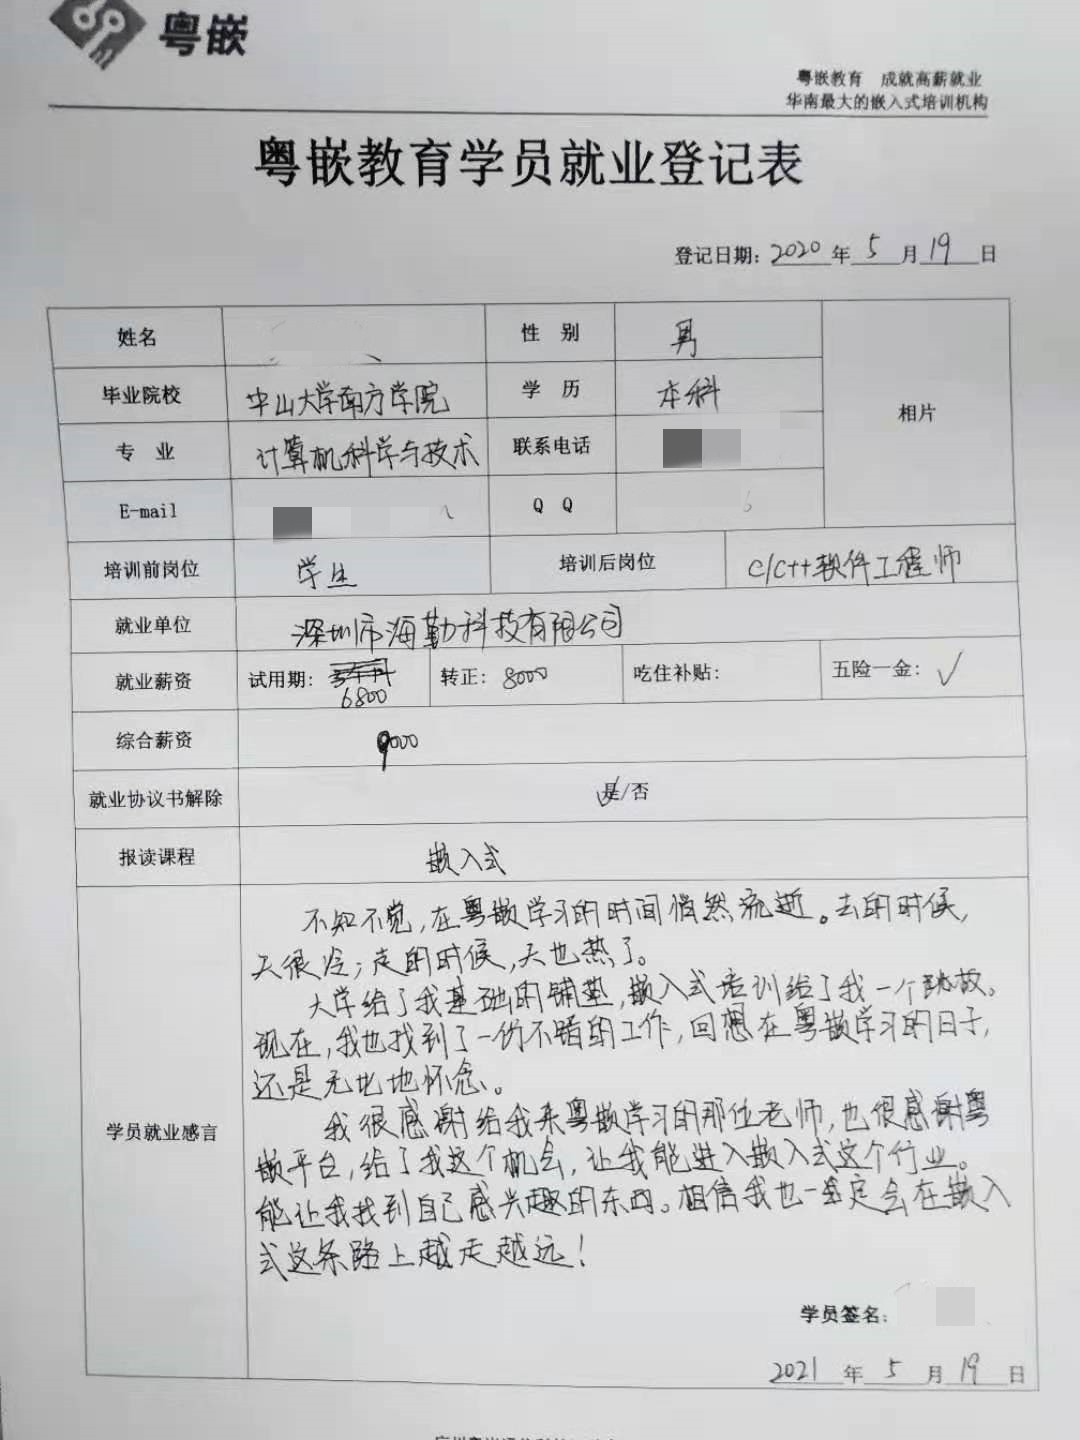 粤嵌
粤嵌教育 成就高薪就业
华南最大的嵌入式培训机构
粤嵌教育学员就业登记表
登记日期: 2020 年 5 月 19 日
姓名 性 别 男
相片
毕业院校 中山大学南方学院 学 历 本科
专 业 计算机科学与技术 联系电话
E-mail Q Q
培训前岗位 学生 培训后岗位 C/C++软件工程师
就业单位 深圳市海勤科技有限公司
就业薪资 试用期: 6800 转正: 8000 吃住补贴: 五险一金: ✓
综合薪资 9000
就业协议书解除 是/否
报读课程 嵌入式
学员就业感言
不知不觉,在粤嵌学习的时间悄然流逝。去的时候,
天很冷;走的时候,天也热了。
大学给了我基础的铺垫,嵌入式培训给了我一个跳板。
现在,我也找到了一份不错的工作,回想在粤嵌学习的日子,
还是无比地怀念。
我很感谢给我来粤嵌学习的那位老师,也很感谢粤
嵌平台,给了我这个机会,让我能进入嵌入式这个行业。
能让我找到自己感兴趣的东西。相信我也一定会在嵌入
式这条路上越走越远!
学员签名:
2021 年 5 月 19 日